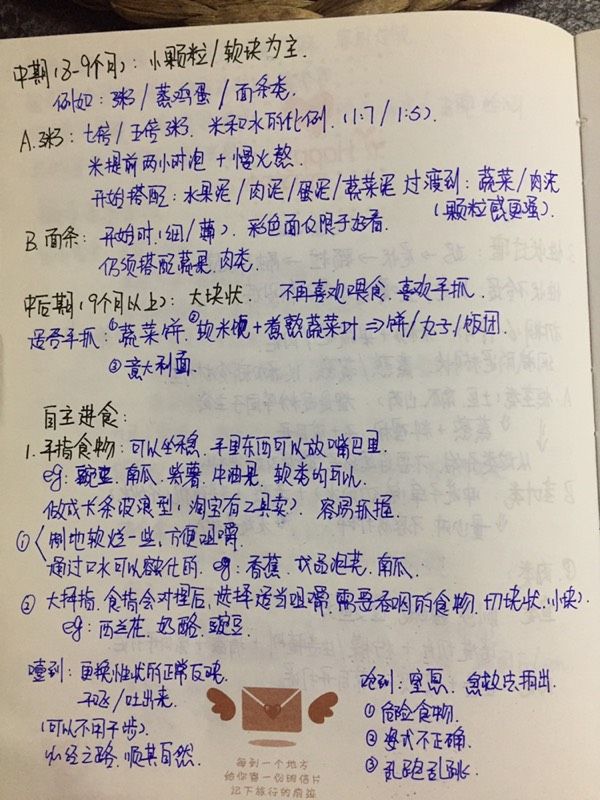 中期(8-9个月): 小颗粒/软块为主.
例如: 粥/蒸鸡蛋/面条类.
A.粥: 七倍/五倍粥. 米和水的比例. (1:7/1:5).
米提前两小时泡 + 慢火熬.
开始搭配: 水果泥/肉泥/蛋泥/蔬菜泥 过渡到: 蔬菜/肉末
(颗粒感更强).
B.面条: 开始时.(细/薄). 彩色面仅限于好看.
仍须搭配蔬果.肉类.
中后期(9个月以上): 大块状. 不再喜欢喂食.喜欢手抓.
适合手抓: ①蔬菜饼. ②软米饭+煮熟蔬菜叶⇒饼/丸子/饭团.
③意大利面.
自主进食:
1.手指食物: 可以坐稳. 手里东西可以放嘴巴里.
eg: 豌豆.南瓜.紫薯.牛油果.软类的
做成长条波浪型.(淘宝有工具卖). 容易抓握.
① 软烂一些.方便咀嚼.
通过口水可以融化的. eg: 香蕉. 南瓜.
② 大拇指.食指会对捏后,选择适当咀嚼.需要吞咽的食物.切块状.(小块).
eg: 西兰花.奶酪.豌豆.
噎到: 更换性状的正常反应.
呕/吐出来.
(可以不用干涉).
必经之路.顺其自然.
呛到: 窒息. 急救法拍出.
① 危险食物.
② 姿式不正确.
③ 乱跑乱跳.
每到一个地方
给你寄一份明信片
记下旅行的痕迹